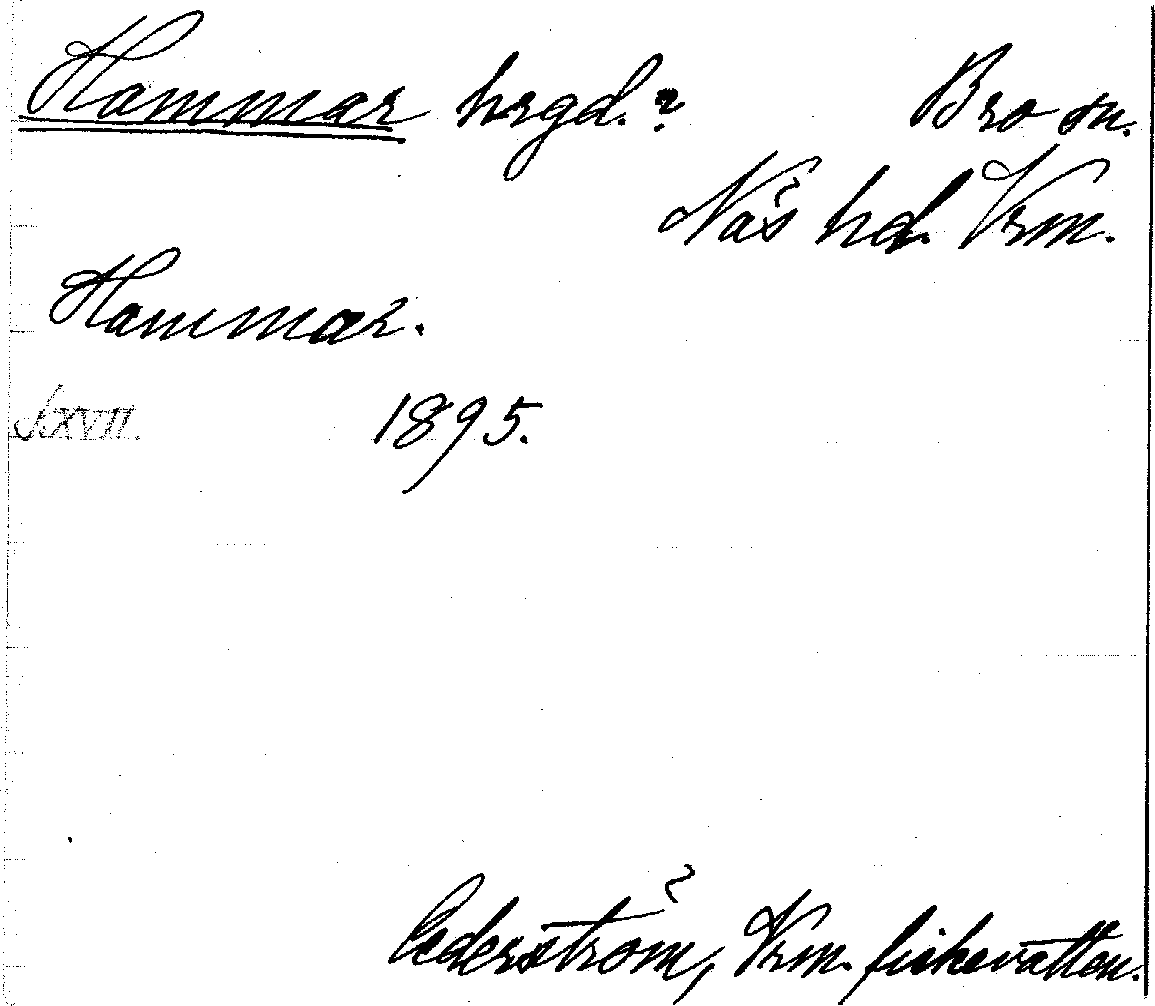 Hammar hrgd.? Bro sn.
Näs hd. Vrm.
Hammar.
S.XVII. 1895.
Cederström, Vrm. fiskevatten.